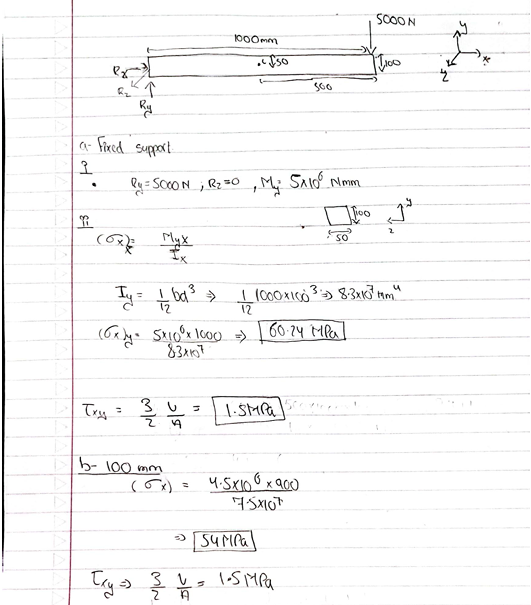 5000N
1000mm
y
x
z
c 50
100
Rx
Rz
Ry
500
a- Fixed support
I
• Ry = 5000N , Rz = 0 , My = 5x10⁶ Nmm
II
(σx)x = Myx / Ix
100
50
y
z
Iy = 1/12 bd³ ⇒ 1/12 1000x100³ ⇒ 8.3x10⁷ mm⁴
(σx)y = 5x10⁶ x 1000 / 8.3x10⁷ ⇒ 60.24 MPa
τxy = 3/2 V/A = 1.5MPa
b- 100 mm
(σx) = 4.5x10⁶ x 900 / 7.5x10⁷
⇒ 54 MPa
τxy ⇒ 3/2 V/A = 1.5MPa